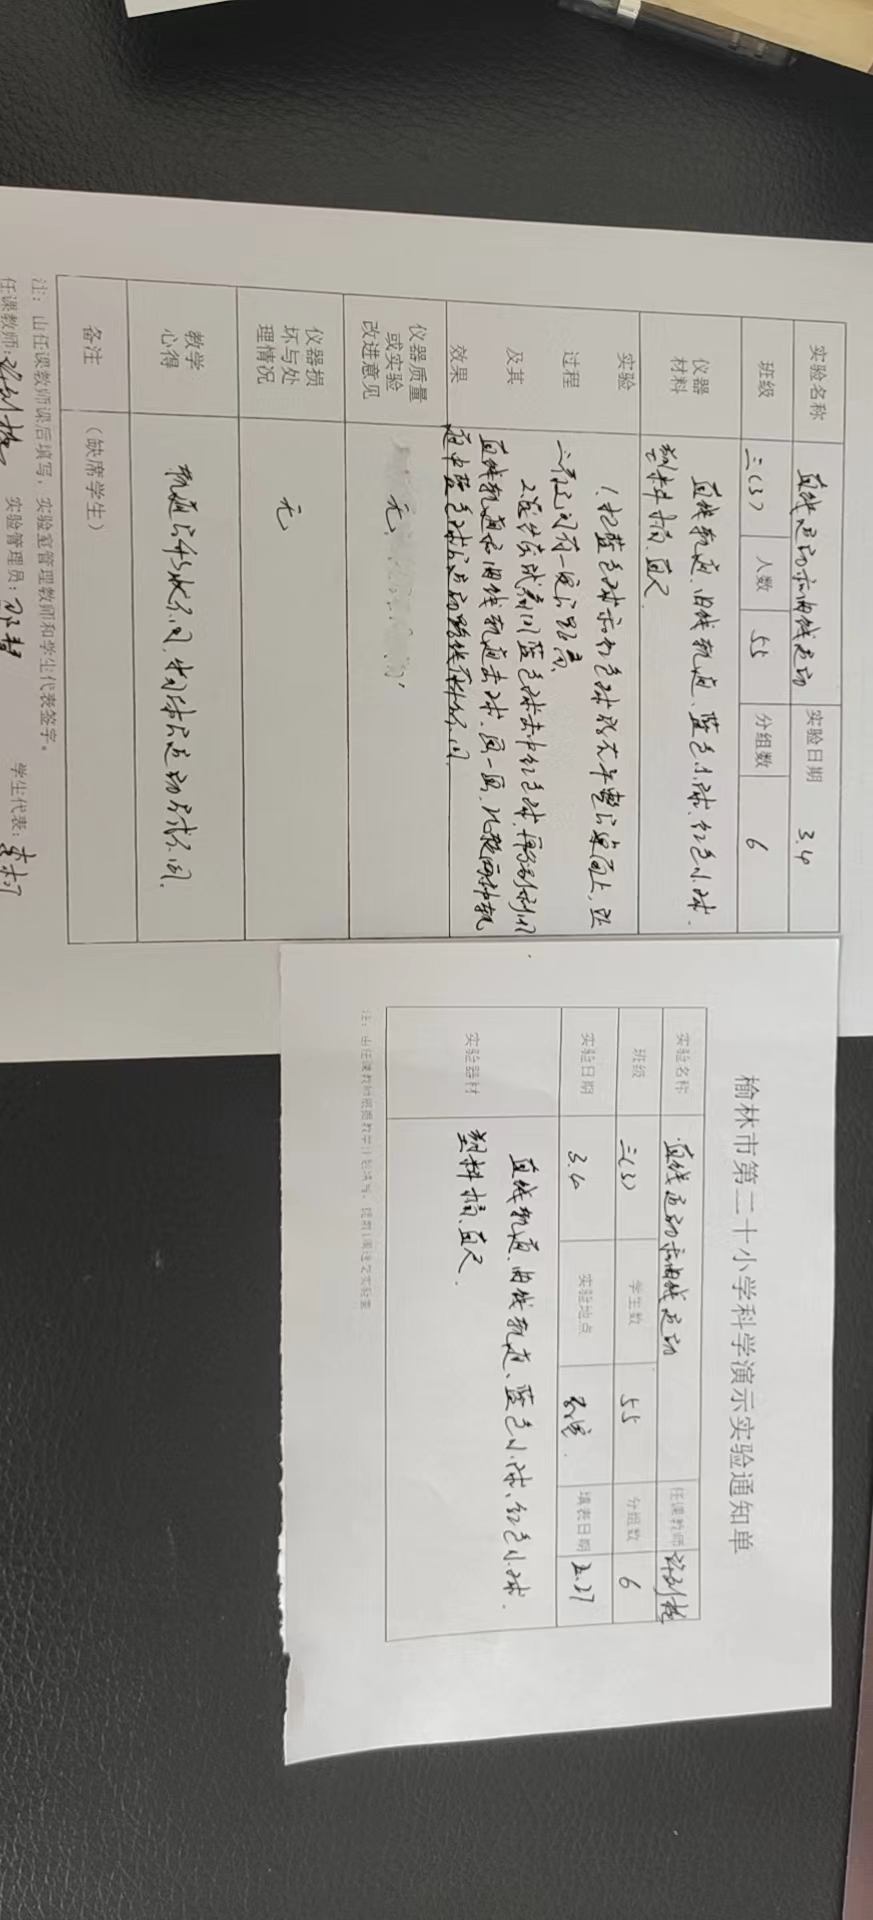 实验名称 直线运动和曲线运动 实验日期 3.4
班级 三(3) 人数 55 分组数 6
仪器材料 直线轨道、曲线轨道、蓝色小球、红色小球、
塑料桶、直尺
实验过程及其效果 1、把蓝色球和红色球放在平整的桌面上,
之间有一定的距离
2、蓝色球击中红色球,再分别利用
直线轨道和曲线轨道击球,画一画,比较两种轨
道中蓝色球的运动路线有什么不同
仪器质量或实验改进意见 无
仪器损坏与处理情况 无
教学心得 轨道的形状不同,物体的运动方式不同。
备注 (缺席学生)
注:由任课教师课后填写,实验室管理教师和学生代表签字。
任课教师: 实验管理员: 学生代表:
榆林市第二十小学科学演示实验通知单
实验名称 直线运动和曲线运动 任课教师
班级 三(3) 学生数 55 分组数 6
实验日期 3.4 实验地点 填表日期 2.27
实验器材 直线轨道、曲线轨道、蓝色小球、红色小球、
塑料桶、直尺.
注:由任课教师根据教学计划填写,提前1周送交实验室